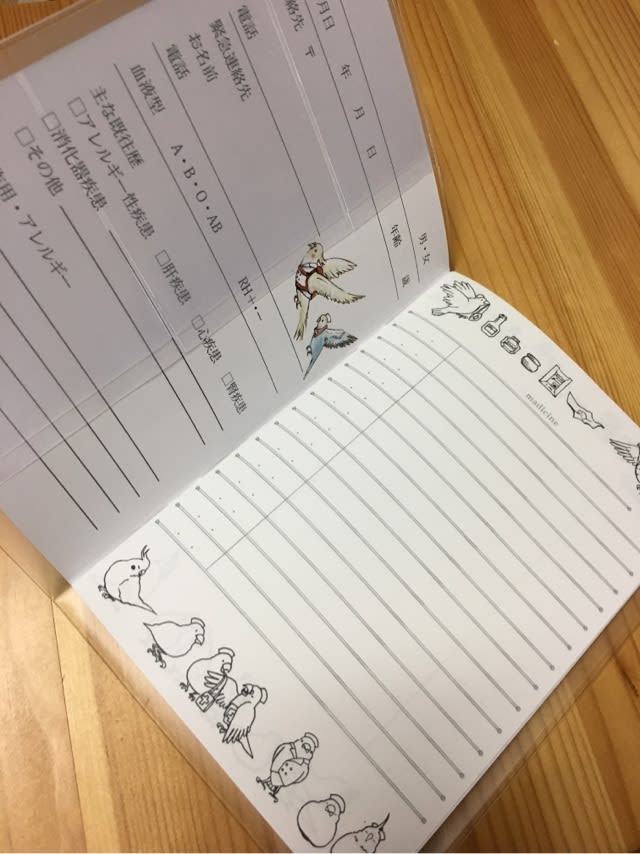 男・女
月日 年 月 日 年齢 歳
絡先 〒
電話
緊急連絡先
お名前
電話
血液型 A・B・O・AB RH+・−
主な既往歴
□アレルギー性疾患 □肝疾患 □心疾患 □腎疾患
□消化器疾患
□その他
用・アレルギー
madicine